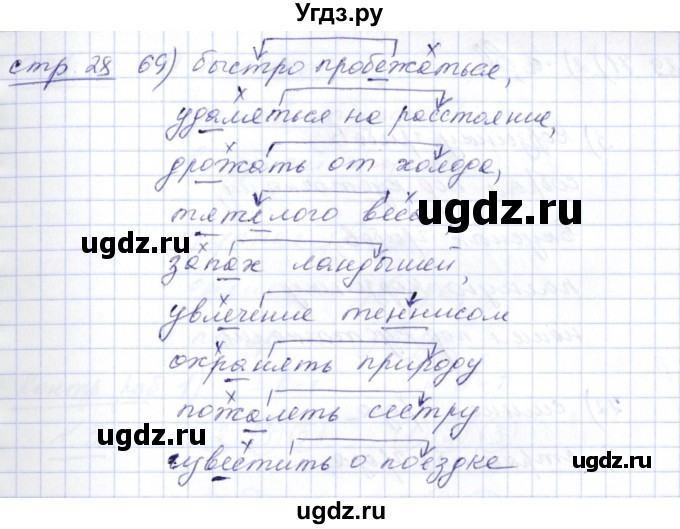 Угдз.ру
стр 28 69) быстро пробежаться,
удаляться на расстояние,
дрожать от холода,
тяжёлого веса
запах ландышей,
увлечение теннисом
охранять природу
пожалеть сестру
известить о поездке
ugdz.ru
ugdz.ru
ugdz.ru
ugdz.ru
ugdz.ru
ugdz.ru
ugdz.ru
ugdz.ru